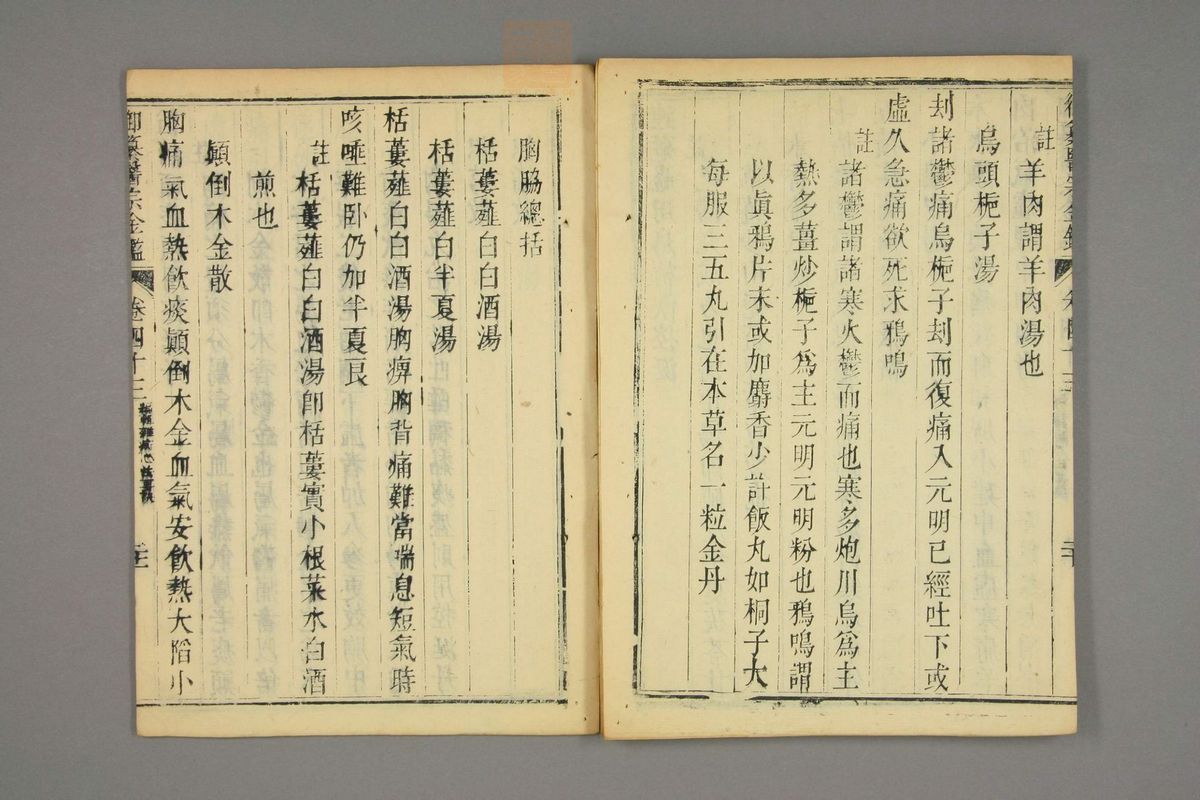 註羊肉謂羊肉湯也
烏頭梔子湯
刦諸鬱痛烏梔子刦而復痛入元明已經吐下或
虛久急痛欲死求鴉鳴
註諸鬱謂諸寒火鬱而痛也寒多炮川烏為主
熱多薑炒梔子為主元明元明粉也鴉鳴謂
以真鴉片末或加麝香少許飯丸如桐子大
每服三五丸引在本草名一粒金丹
胸脇總括
栝蔞薤白白酒湯
栝蔞薤白半夏湯
栝蔞薤白白酒湯胸痹胸背痛難當喘息短氣時
咳唾難卧仍加半夏良
註栝蔞薤白白酒湯即栝蔞實小根菜水白酒
煎也
顛倒木金散
胸痛氣血熱飲痰顛倒木金血氣安飲熱大陷小
御纂醫宗金鑑 卷四十三